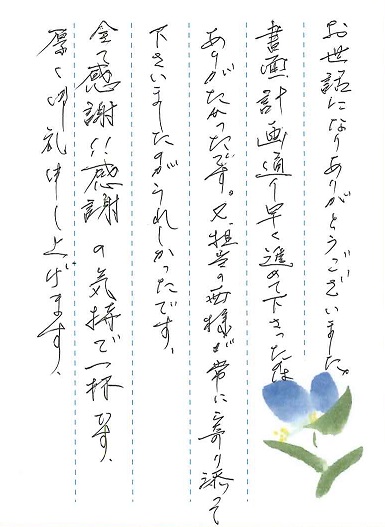 お世話になりありがとうございました。
書画計画通り早く進めて下さった
ありがたかったです。又、担当の皆様が常に寄り添って
下さいましたのがうれしかったです。
全て感謝!!感謝の気持で一杯です、
厚く御礼申し上げます、